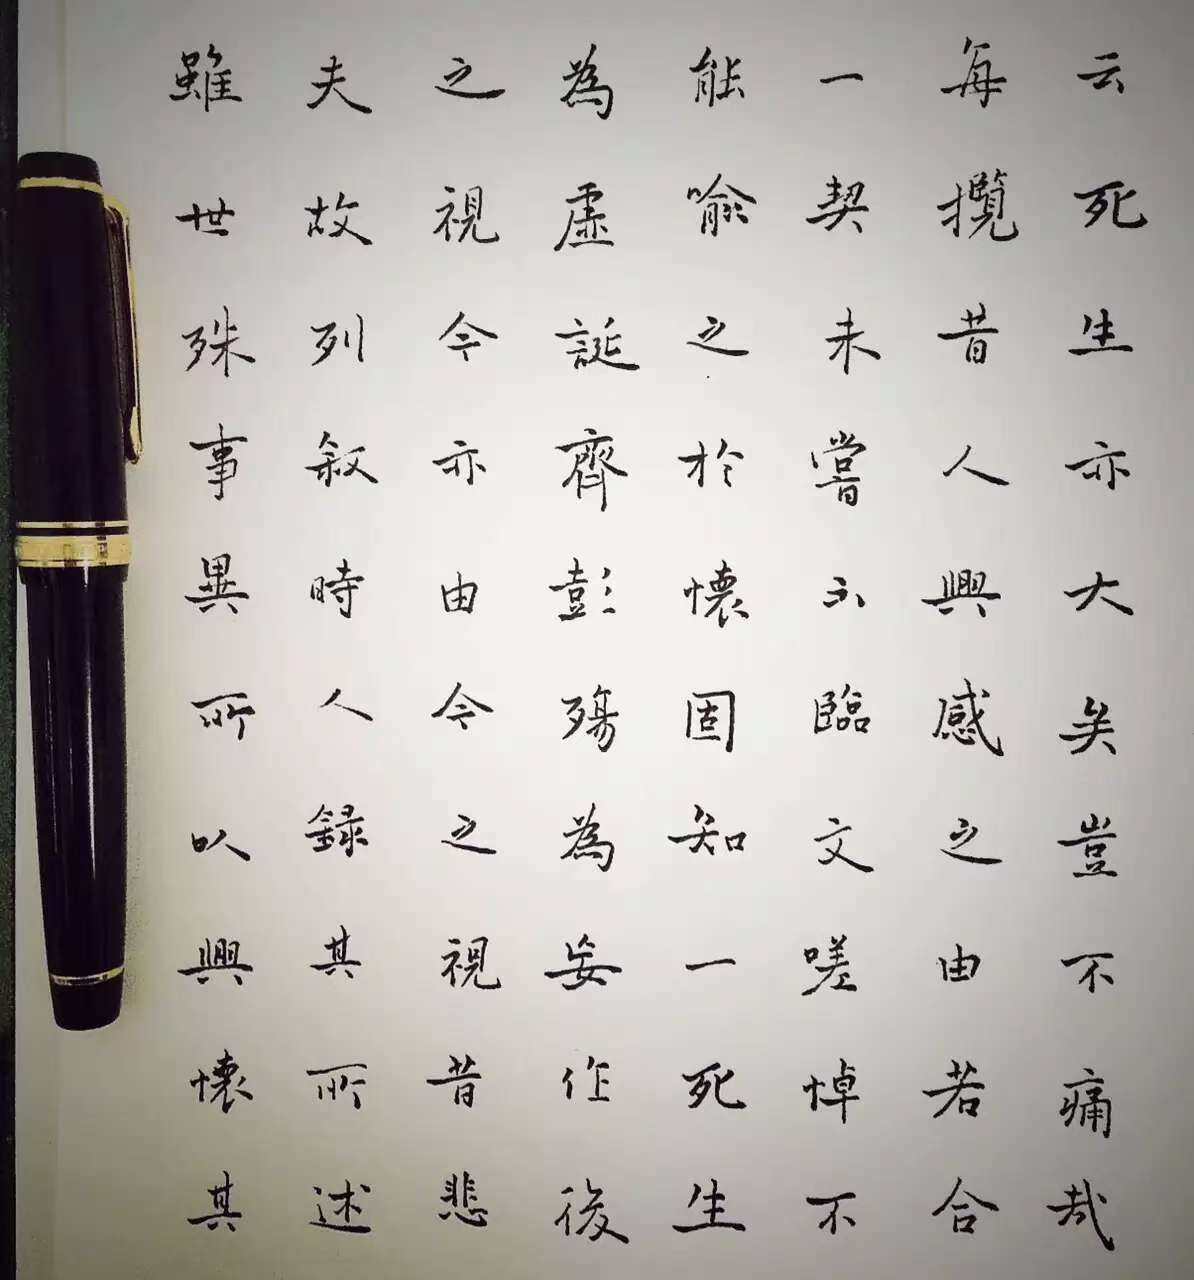 云死生亦大矣豈不痛哉
每攬昔人興感之由若合
一契未嘗不臨文嗟悼不
能喻之於懷固知一死生
為虛誕齊彭殤為妄作後
之視今亦由今之視昔悲
夫故列敘時人錄其所述
雖世殊事異所以興懷其